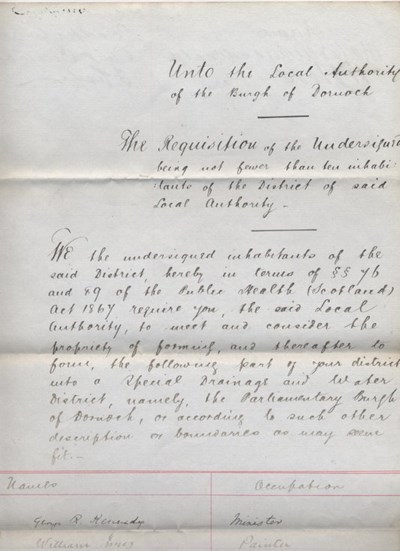 Unto the Local Authority
of the Burgh of Dornoch
The Requisition of the Undersigned
being not fewer than ten inhabi-
tants of the District of said
Local Authority.
We the undersigned inhabitants of the
said District, hereby in terms of §§ 76
and 89 of the Public Health (Scotland)
Act 1867, require you, the said Local
Authority, to meet and consider the
propriety of forming, and thereafter to
form, the following part of your district
into a Special Drainage and Water
District, namely, the Parliamentary Burgh
of Dornoch, or according to such other
description or boundaries as may seem
fit.-
Names Occupation
George R. Kennedy Minister
William Innes Painter